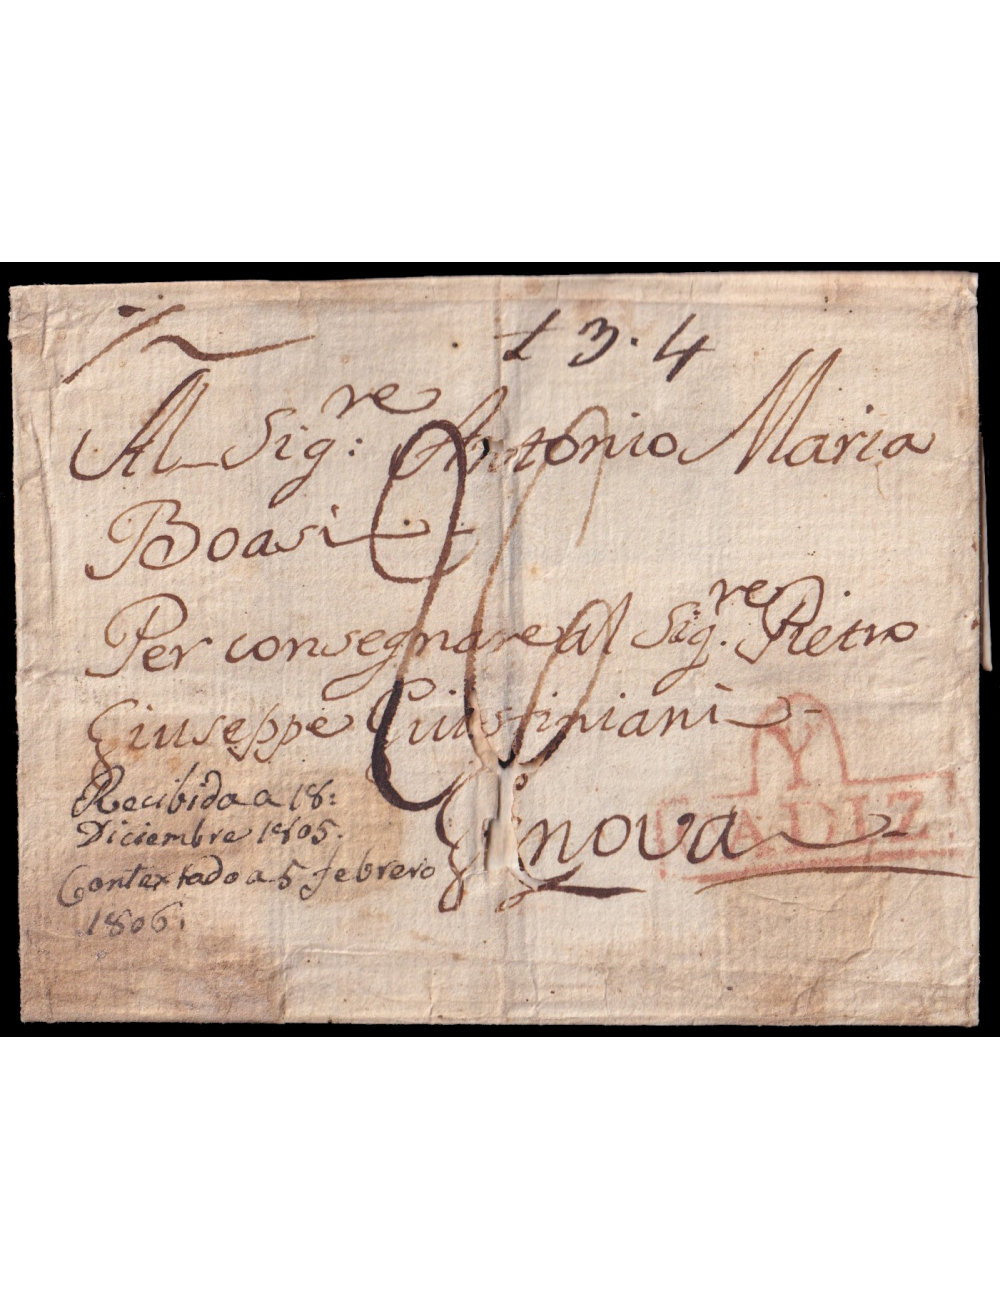 £ 3.4
Al Sig.re Antonio Maria
Boasi
Per consegnare al Sig.re Pietro
Giuseppe Giustiniani
Genova
Y
CADIZ
Recibida a 18:
Diciembre 1805.
Contextado a 5 febrero
1806.